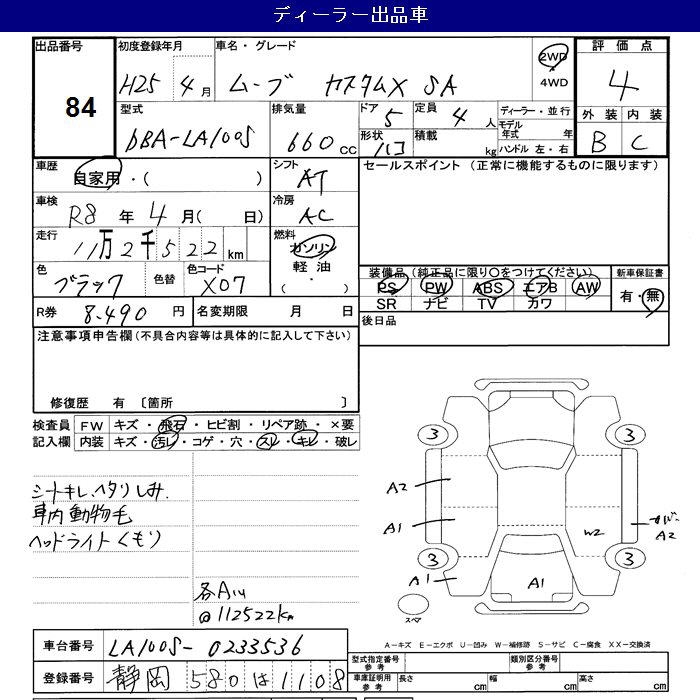 ディーラー出品車
出品番号 84
初度登録年月 H25年 4月
車名・グレード ムーブ カスタムX SA
2WD ・ 4WD
評価点 4
外装 B 内装 C
型式 DBA-LA100S
排気量 660 CC
ドア 5 定員 4人
形状 ハコ 積載 kg
ディーラー・並行
モデル年式 年
ハンドル 左・右
車歴 自家用・( )
シフト AT
セールスポイント (正常に機能するものに限ります)
車検 R8年 4月( 日)
冷房 AC
走行 11万2千522km
燃料 ガソリン 軽油 ( ・ )
色 ブラック 色替 色コード X07
装備品 (純正品に限り〇をつけてください)
PS PW ABS エアB AW
SR ナビ TV カワ
新車保証書 有・無
R券 8,490円 名変期限 月 日
後日品
注意事項申告欄(不具合内容等は具体的に記入して下さい)
修復歴 有 〔箇所 〕
検査員記入欄
FW キズ・飛石・ヒビ割・リペア跡・×要
内装 キズ・汚レ・コゲ・穴・スレ・キレ・破レ
シートキレ.ヘタリしみ.
車内動物毛
ヘッドライトくもり
各A1い
@112522km
3 3
A2
A1
W2
A2
3 3
A1
A1
スペア
A-キズ E-エクボ U-凹み W-補修跡 S-サビ C-腐食 XX-交換済
車台番号 LA100S-0233536
登録番号 静岡 580 は 1108
型式指定番号 参考 類別区分番号 参考
車庫証明用 参考 長さ cm 幅 cm 高さ cm